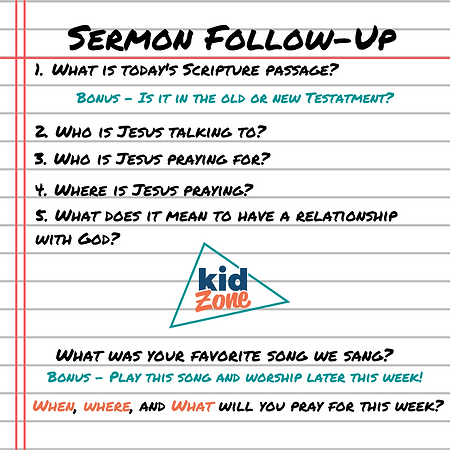 Sermon Follow-Up
1. What is today's Scripture passage?
Bonus - Is it in the old or new Testatment?
2. Who is Jesus talking to?
3. Who is Jesus praying for?
4. Where is Jesus praying?
5. What does it mean to have a relationship
with God?
kid
Zone
What was your favorite song we sang?
Bonus - Play this song and worship later this week!
When, where, and What will you pray for this week?